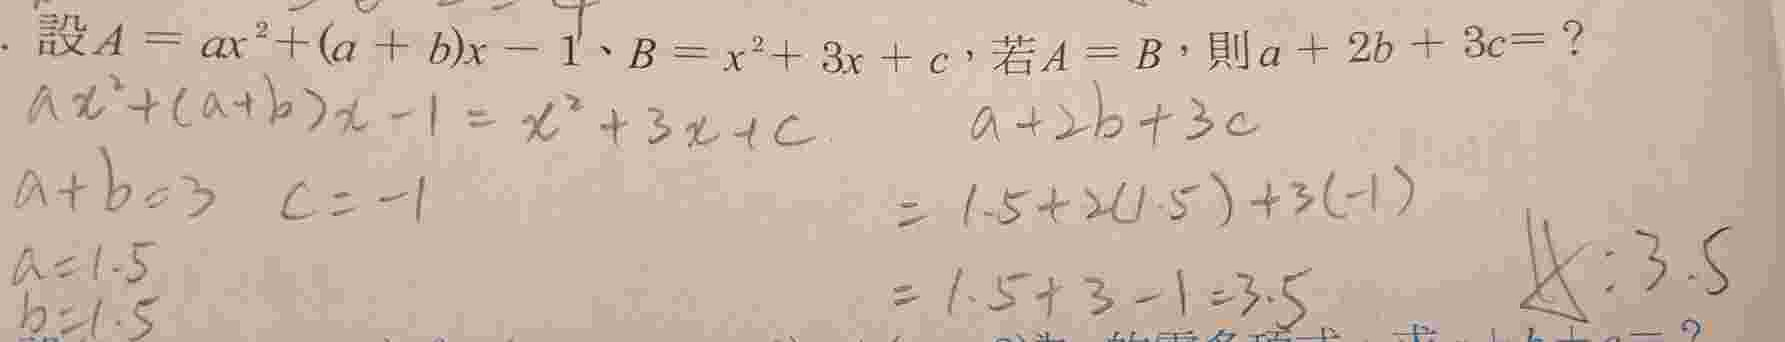 設A = ax²+(a + b)x − 1、B = x²+ 3x + c，若A = B，則a + 2b + 3c= ?
ax²+(a+b)x-1=x²+3x+c
a+b=3 c=-1
a=1.5
b=1.5
a+2b+3c
=1.5+2(1.5)+3(-1)
=1.5+3-1=3.5
A:3.5